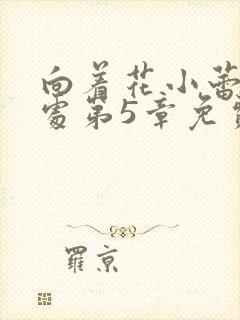 向着花小蕾
处第5章免费
羅京